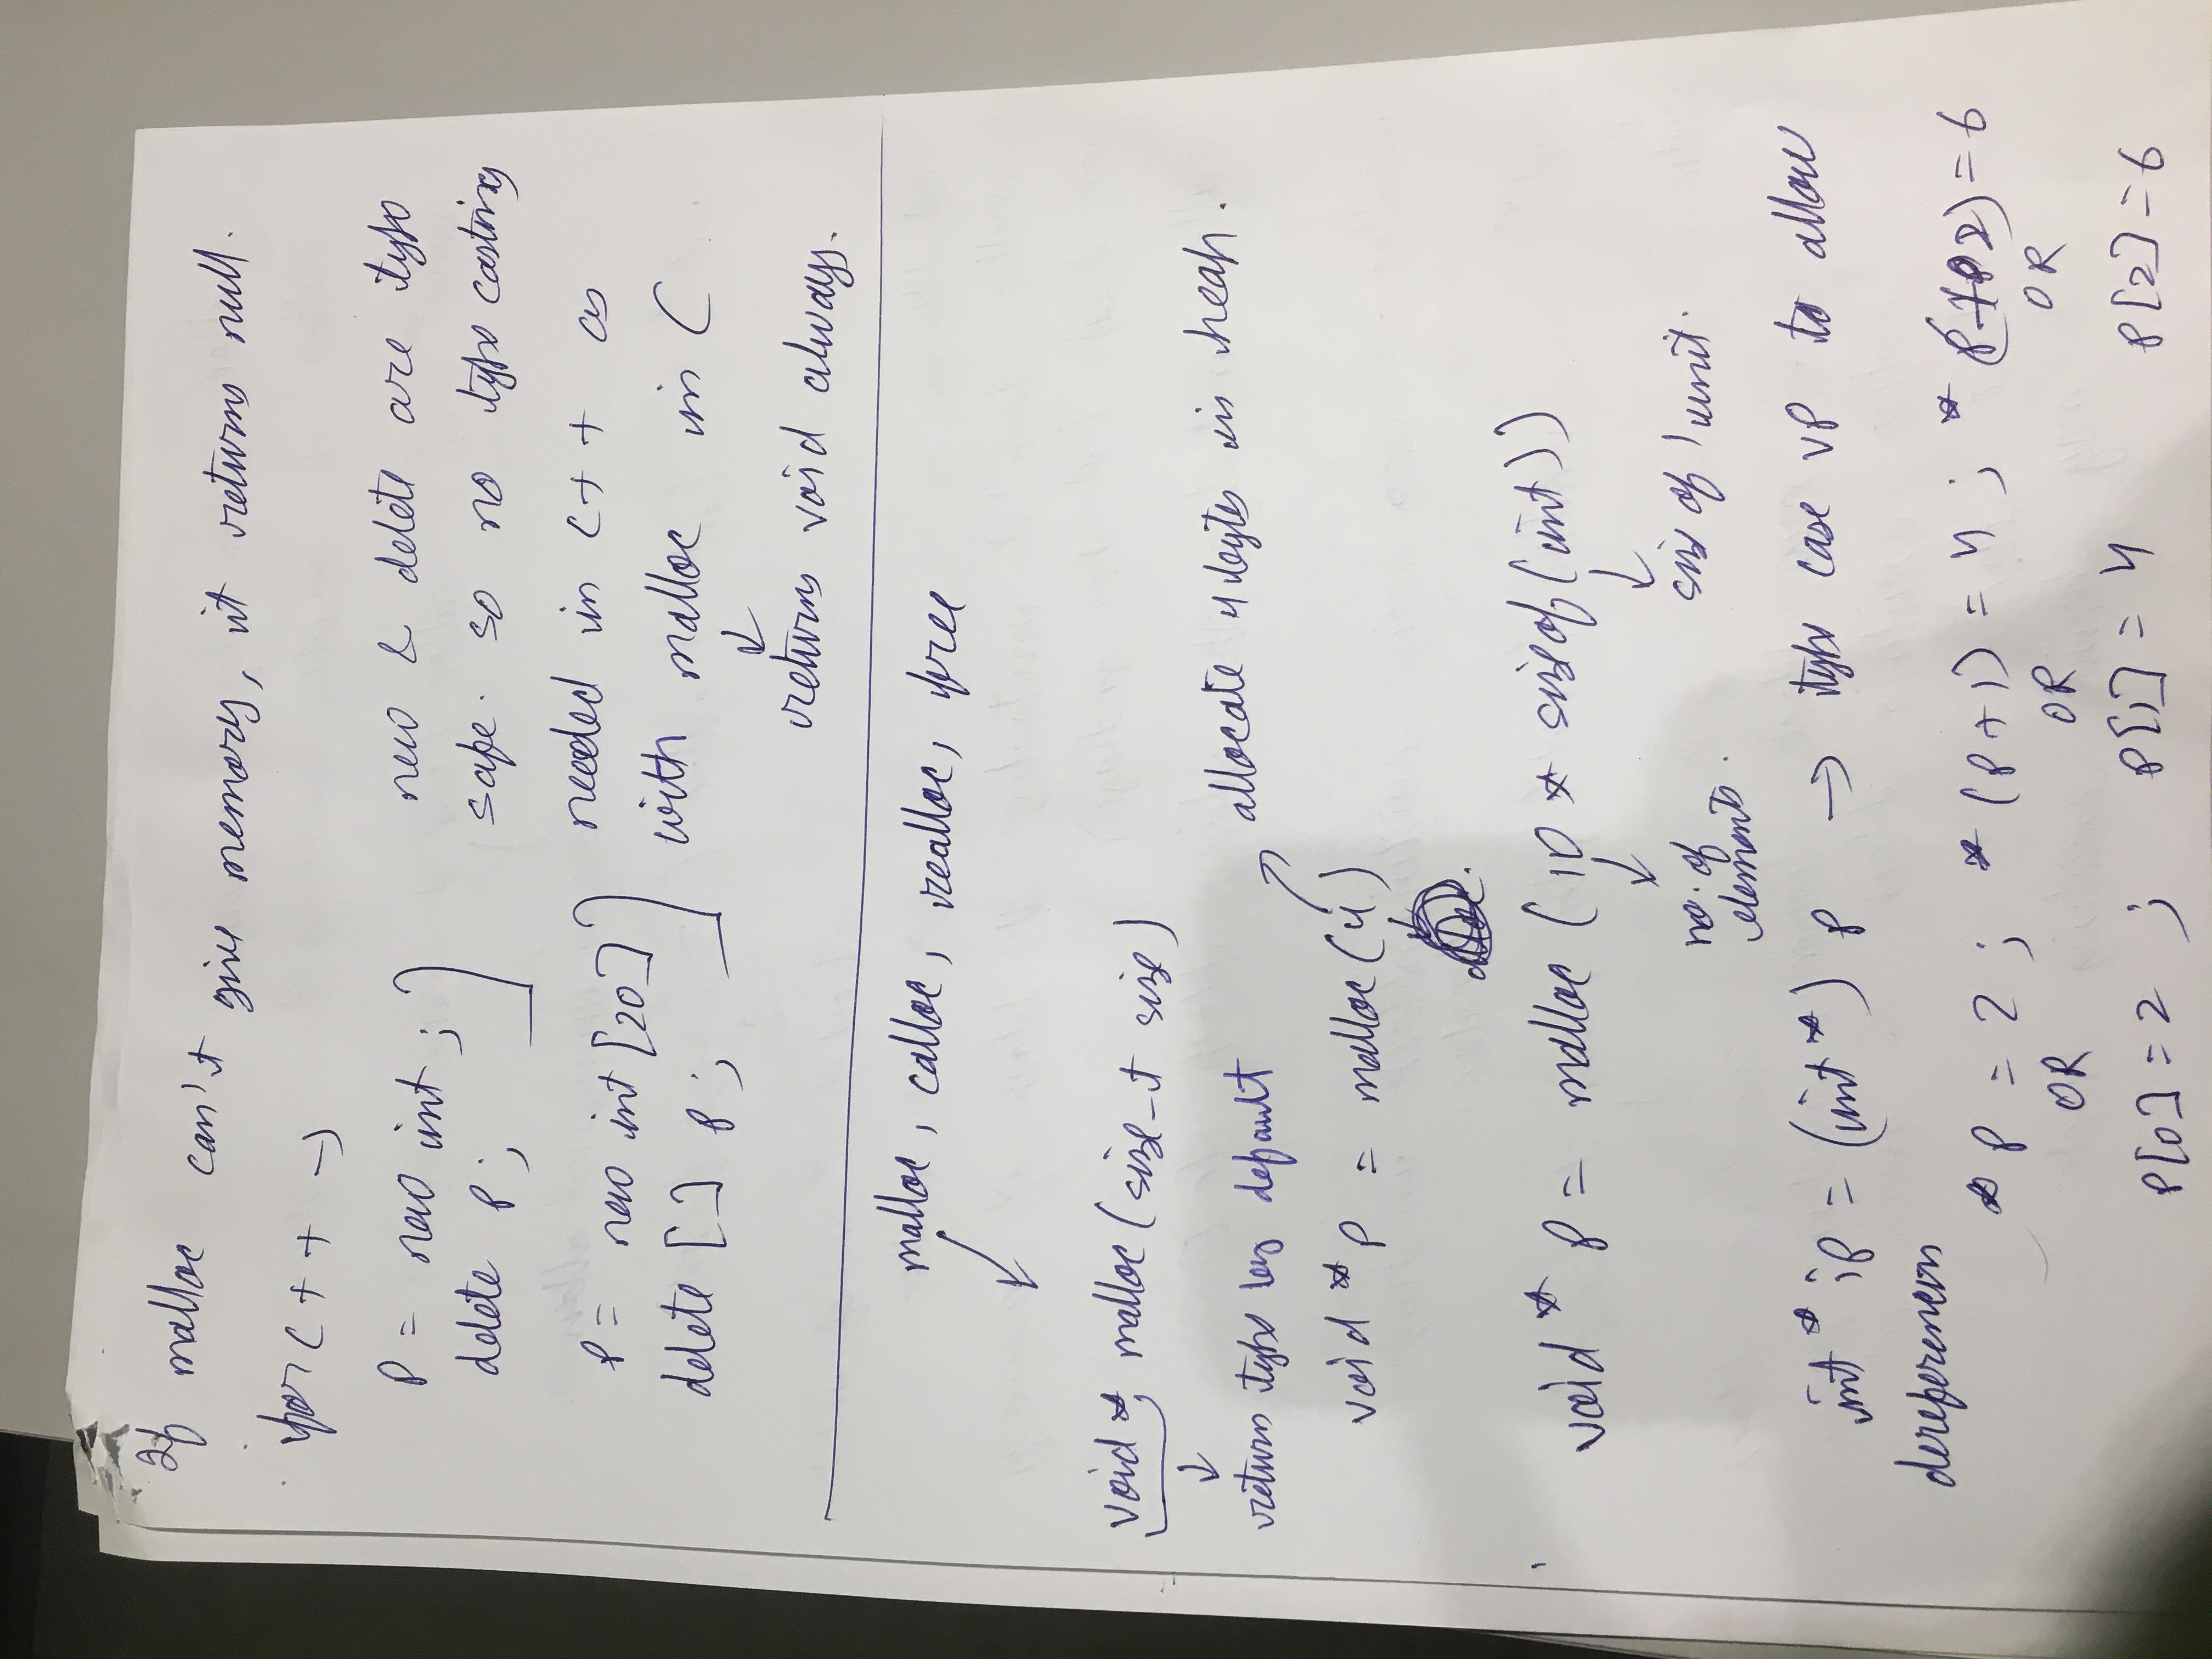 If malloc can't give memory, it returns null.
for C++ →
P = new int;
delete P;
new & delete are type
safe. so no type casting
P = new int [20]
delete [] P;
needed in C++ as
with malloc in C
returns void always.
malloc, calloc, realloc, free
void * malloc (size_t size)
return type by default
allocate 4 bytes in heap.
void * P = malloc (4)
void * P = malloc (10 * sizeof(int))
no. of
elements.
size of 1 unit.
int * iP = (int *) P → type case VP to allow
dereferencing
*P = 2; *(P+1) = 4; *(P+2) = 6
OR OR OR
P[0] = 2; P[1] = 4 P[2] = 6